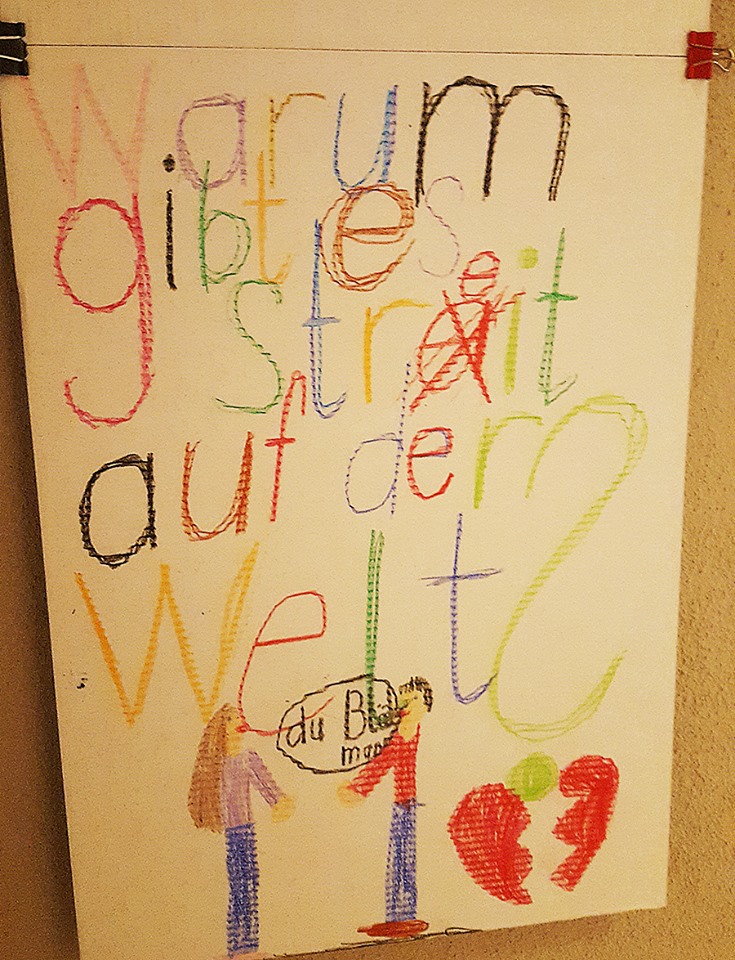 Warum
gibt es
streit
auf der
Welt?
du